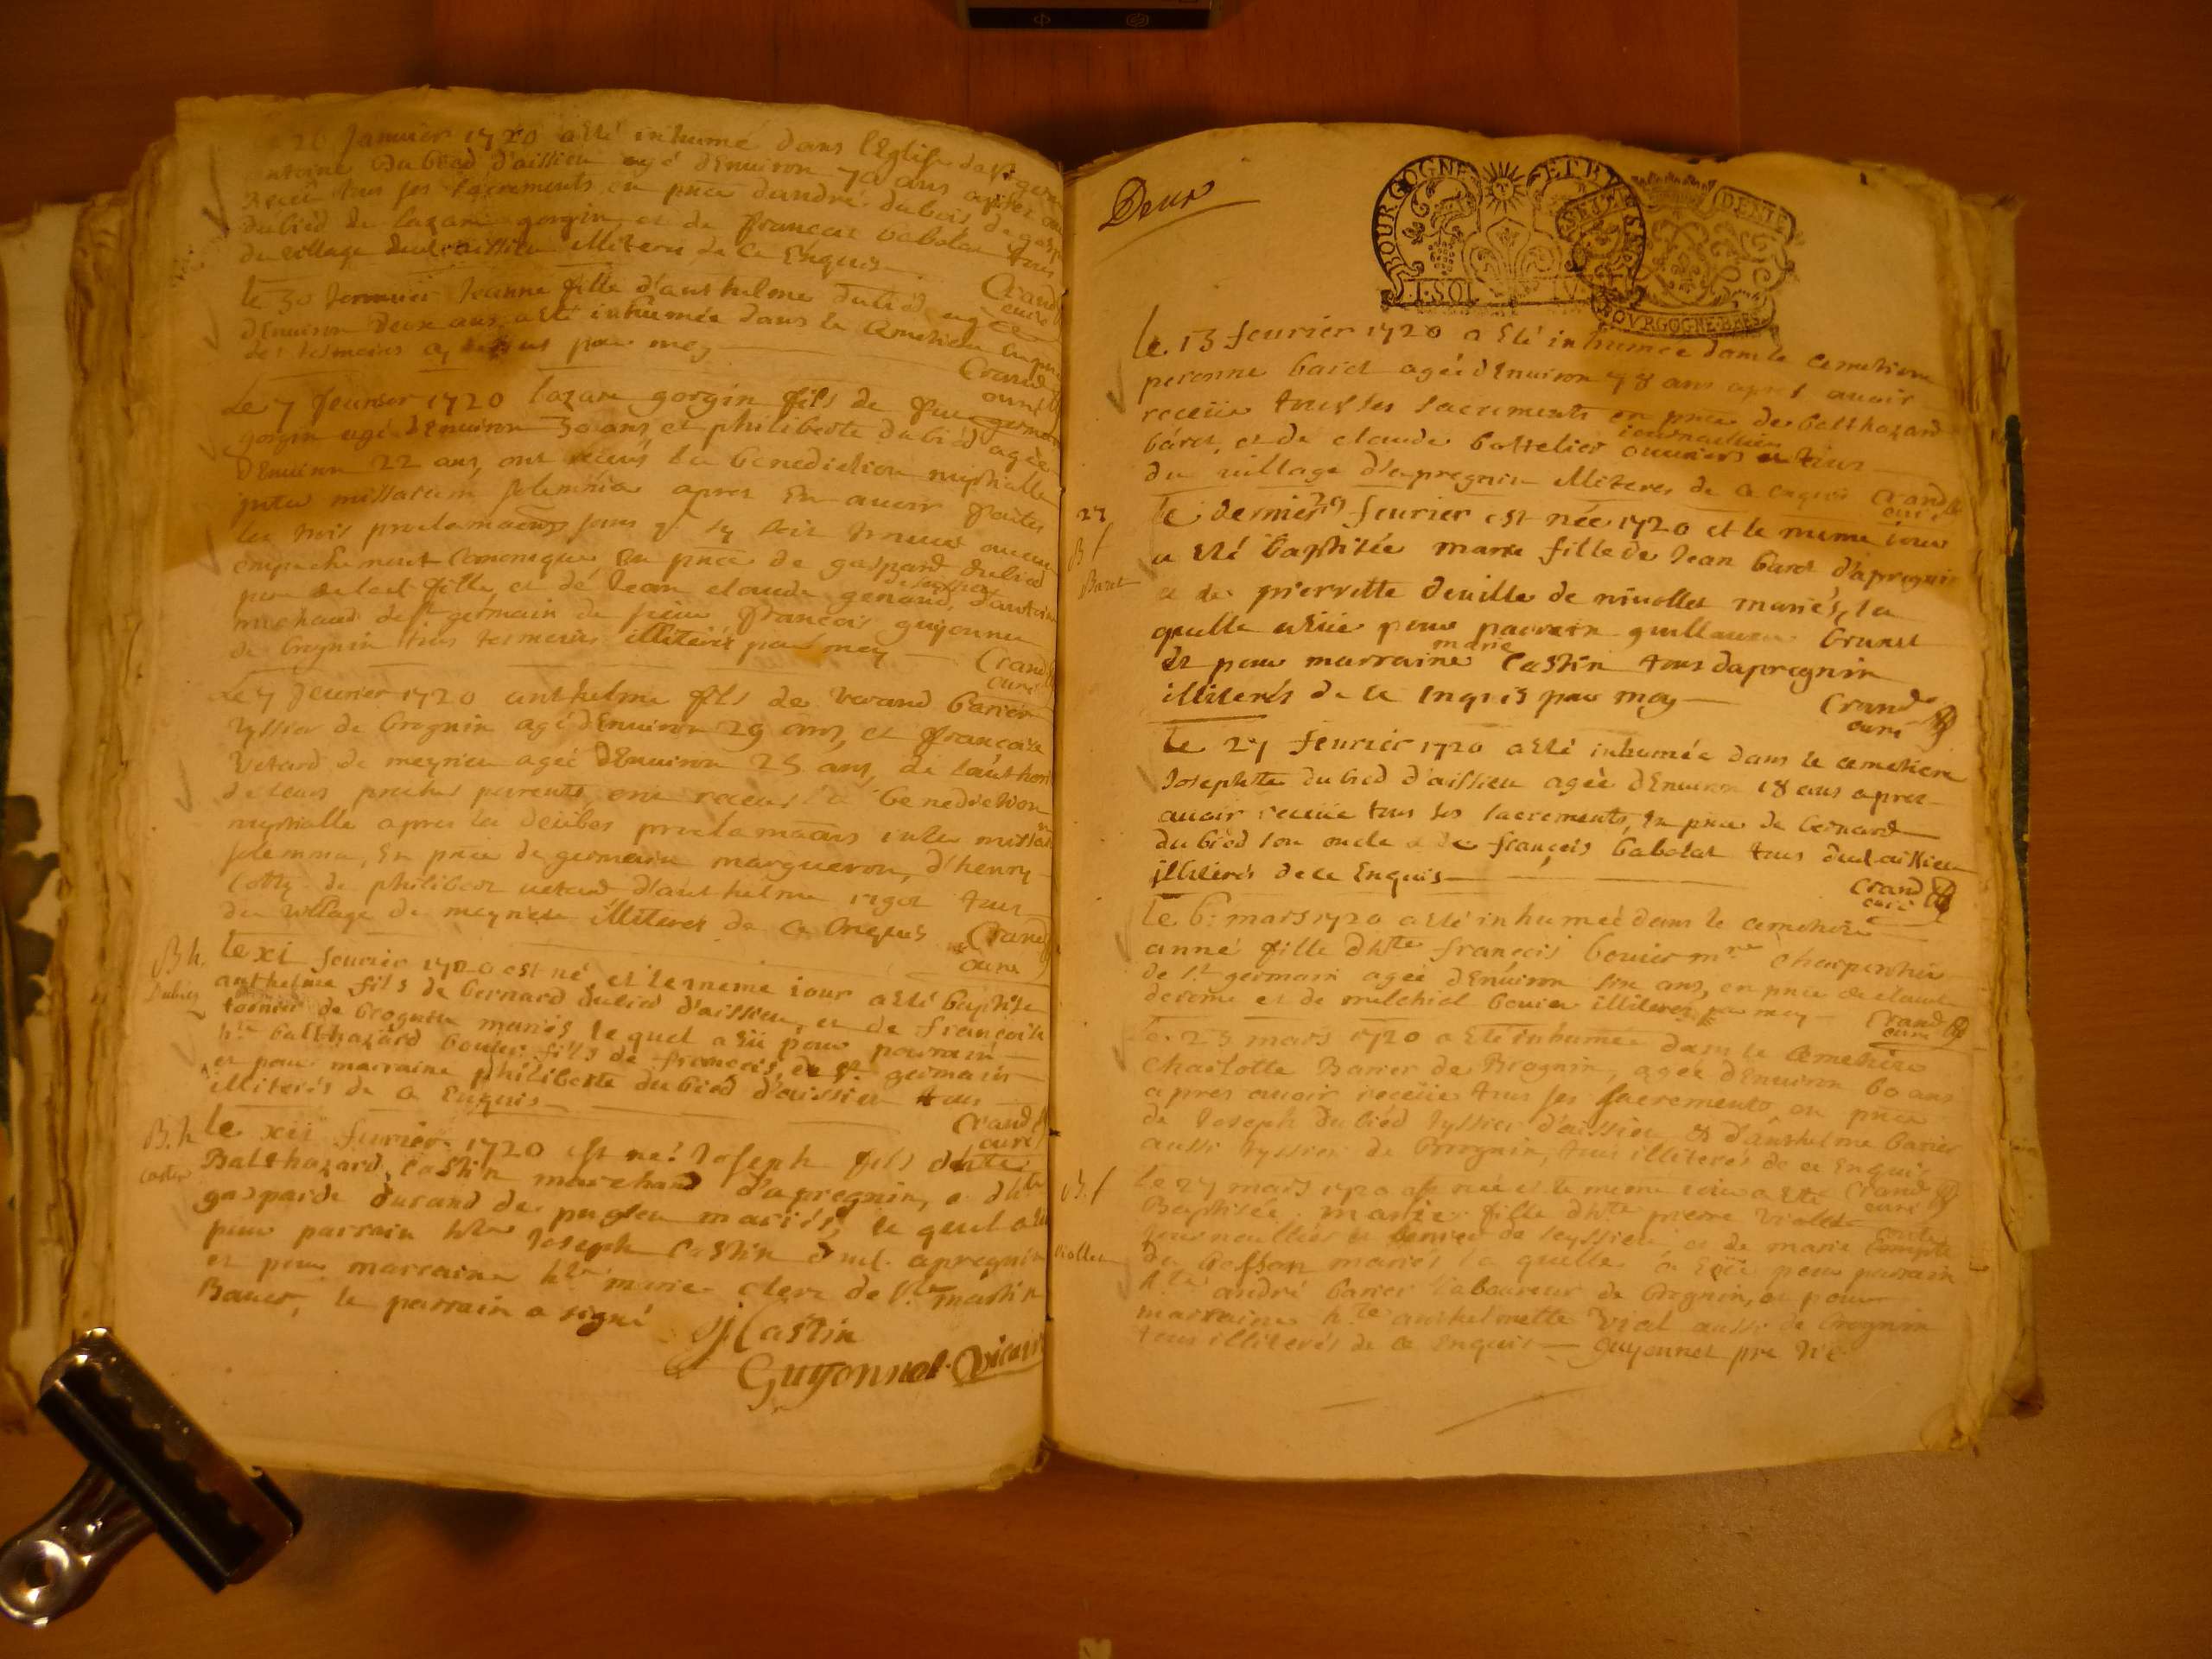 20 Janvier 1720 a esté inhumé dans l'Eglise de st germ
antoine dubied d'aissieu agé d'Enuiron 70 ans apres
Receu tous ses sacrements en pnce d'andré dubois de
dubied de lazare gorgin et de francois babolat tous
du village dud. aissieu illiteres de ce Enquis
Crand
curé
le 30 Januier Jeanne fille d'anthelme dubied agée
d'Enuiron deux ans a esté inhumée dans le Cemetiere en pnce
des tesmoins cy dessus par moy
Crand
curé
Le 7 feurier 1720 lazare gorgin fils de feu germain
gorgin agé d'Enuiron 30 ans et philiberte dubied agée
d'Enuiron 22 ans, ont receus la benediction nuptialle
inter missarum solemnia apres En auoir faites
les trois proclamaons sans q' sy soit trouué aucun
empechement Canonique En pnce de gaspard dubied
pere de lad. fille, et de Jean claude genoud, d'antoine
michaud de st germain de francois guyonnet
de brognin tous tesmoins illiterés par moy
Crand
curé
Le 7 feurier 1720 anthelme fils de Verand barier
tyssier de brognin agé d'Enuiron 29 ans, et francoise
Vetard de meyrieu agée d'Enuiron 25 ans, de l'authorité
de leurs proches parents, ont receus la benediction
nuptialle apres les deübes proclamaons inter missar
solemnia, En pnce de germain margueron, d'henry
Cotty de philibert uetard d'anthelme rigot tous
du village de meyrieu illiteres de ce Enquis
Crand
curé
B h. le xi feurier 1720 est né et le meme iour a esté baptisé
Dubiez anthelme fils de bernard dubied d'aissieu, et de francoise
tornier de brognin mariés le quel a eü pour parrain
h.te balthazard bouier fils de francois, de st germain
et pour marraine philiberte dubied d'aissieu tous
illiterés de ce Enquis
Crand
curé
B. h le xii feurier 1720 est né Joseph fils d'h.te
Castin Balthazard Castin marchand d'apregnin, e d'h.te
gasparde durand de pugieu mariés, le quel a eü
pour parrain h.te Joseph Castin dud. apregnin
et pour marraine h.te marie clerc de st martin
Bauer, le parrain a signé
JCastin
Guyonnet Vicaire
Deux
BOURGOGNE ET BRESSE
I. SOL IV
DENIE
BOURGOGNE BRES
le 13 feurier 1720 a esté inhumée dans le cemetiere
peronne baret agée d'Enuiron 78 ans apres auoir
receüe tous ses sacrements en pnce de balthazard
baret, et de claude battelier iournaillier tous
du village d'apregnin illiteres de ce enquis Crand
curé
27 le dernier 29 feurier est née 1720 et le meme iour
B f a esté baptisée marie fille de Jean baret d'apregnin
Baret et de pierrette deuille de niuollet mariés, la
quelle a eüe pour parrain guillaume brunet
et pour marraine marie Castin tous dapregnin
illiterés de ce Inquis par moy
Crand
curé
le 27 feurier 1720 a esté inhumée dans le cemetiere
Josephte dubied d'aissieu agée d'Enuiron 18 ans apres
auoir receüe tous ses sacrements, En pnce de bernard
dubied son oncle e de françois babolat tous dud. aissieu
illiterés de ce Enquis
Crand
curé
le 6: mars 1720 a esté inhumeé dans le cemetiere
anne fille d'h.te françois bouier m.re charpentier
de st germain agée d'Enuiron six ans, en pnce de claude
derome et de melchiol bouier illiteres par moy Crand
curé
le 23 mars 1720 a esté inhumée dans le Cemetiere
Charlotte Barier de Brognin, agée d'Enuiron 60 ans
apres auoir receüe tous ses sacrements, en pnce
de Joseph dubied tyssier d'aissieu & d'anthelme barier
aussi tyssier de Brognin, tous illiterés de ce Enquis
Crand
curé
B. f le 27 mars 1720 est née et le meme iour a esté
Baptisée marie fille d'h.te pierre Viollet
Viollet journaillier de seyssieu, et de marie Compte
de mariés la quelle a eüe pour parrain
h.te andré barier laboureur de brognin, et pour
marraine h.te anthelmette Vial aussi de brognin
tous illiterés de ce enquis Guyonnet pre Vic